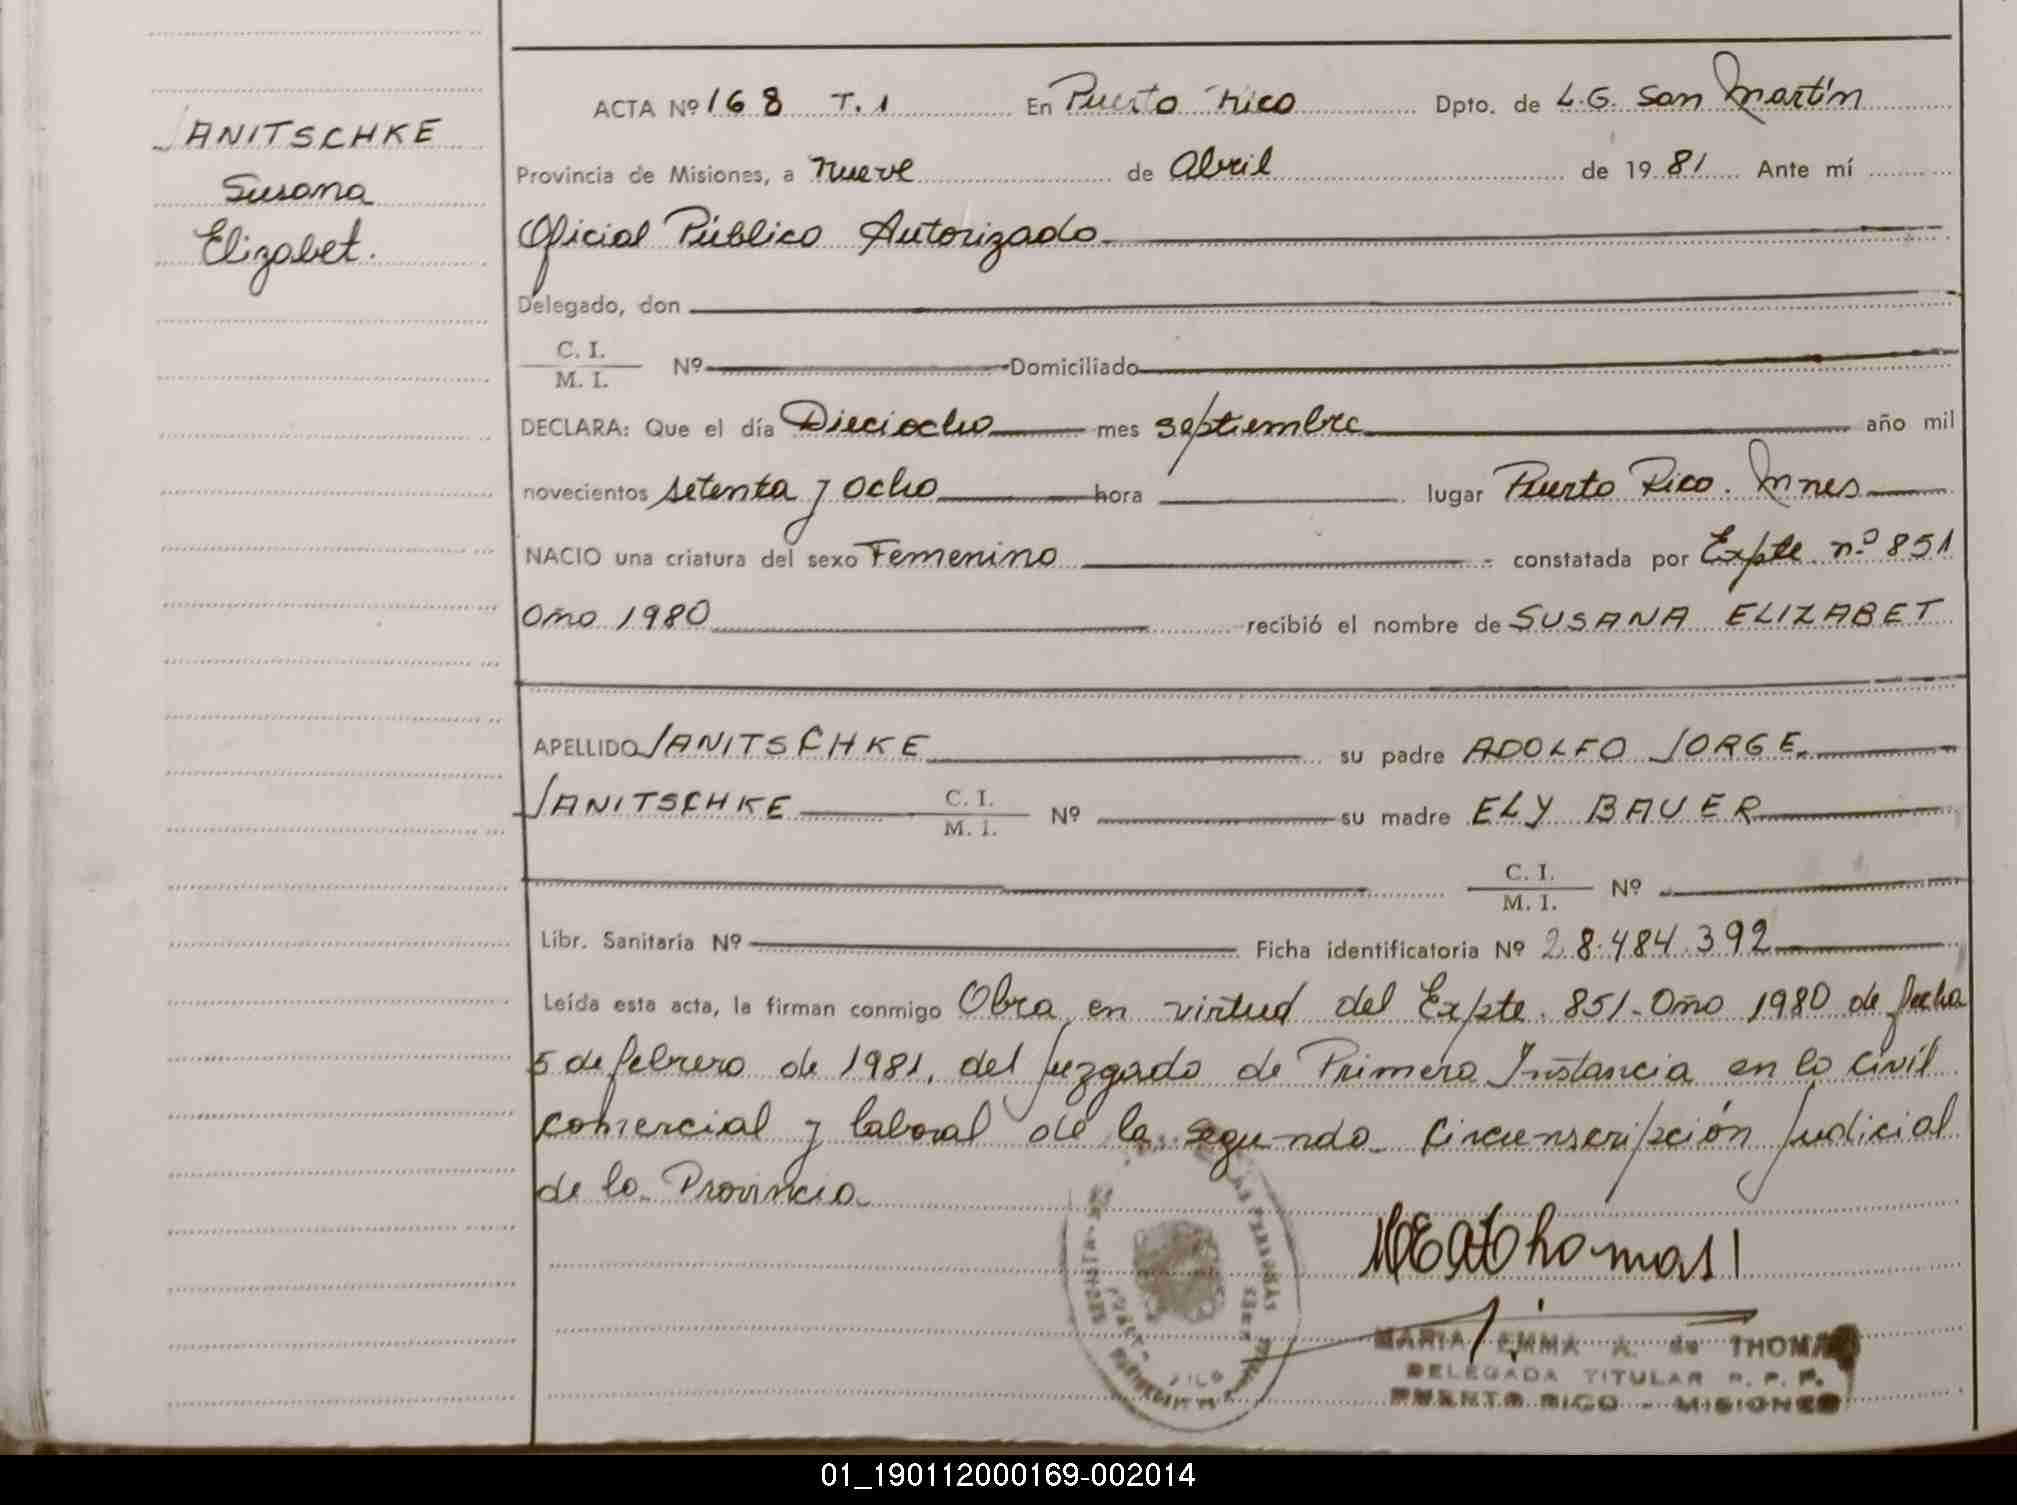 JANITSCHKE
Susana
Elizabet.
ACTA Nº 168 T.1 En Puerto Rico Dpto. de L.G. San Martín
Provincia de Misiones, a nueve de Abril de 1981 Ante mí
Oficial Público Autorizado
Delegado, don
C. I.
M. I. Nº Domiciliado
DECLARA: Que el día Dieciocho mes septiembre año mil
novecientos setenta y ocho hora lugar Puerto Rico. Mnes
NACIO una criatura del sexo Femenino constatada por Expte. nº 851
año 1980 recibió el nombre de SUSANA ELIZABET
APELLIDO JANITSCHKE su padre ADOLFO JORGE
JANITSCHKE C. I. M. I. Nº su madre ELY BAUER
C. I. M. I. Nº
Libr. Sanitaria Nº Ficha identificatoria Nº 28.484.392
Leída esta acta, la firman conmigo Obra en virtud del Expte. 851-año 1980 de fecha
5 de febrero de 1981, del juzgado de Primera Instancia en lo civil
comercial y laboral de la segunda circunscripción judicial
de la Provincia
MEAThomas
MARIA EMMA A. de THOMAS
DELEGADA TITULAR R. P. P.
PUERTO RICO - MISIONES
01_190112000169-002014